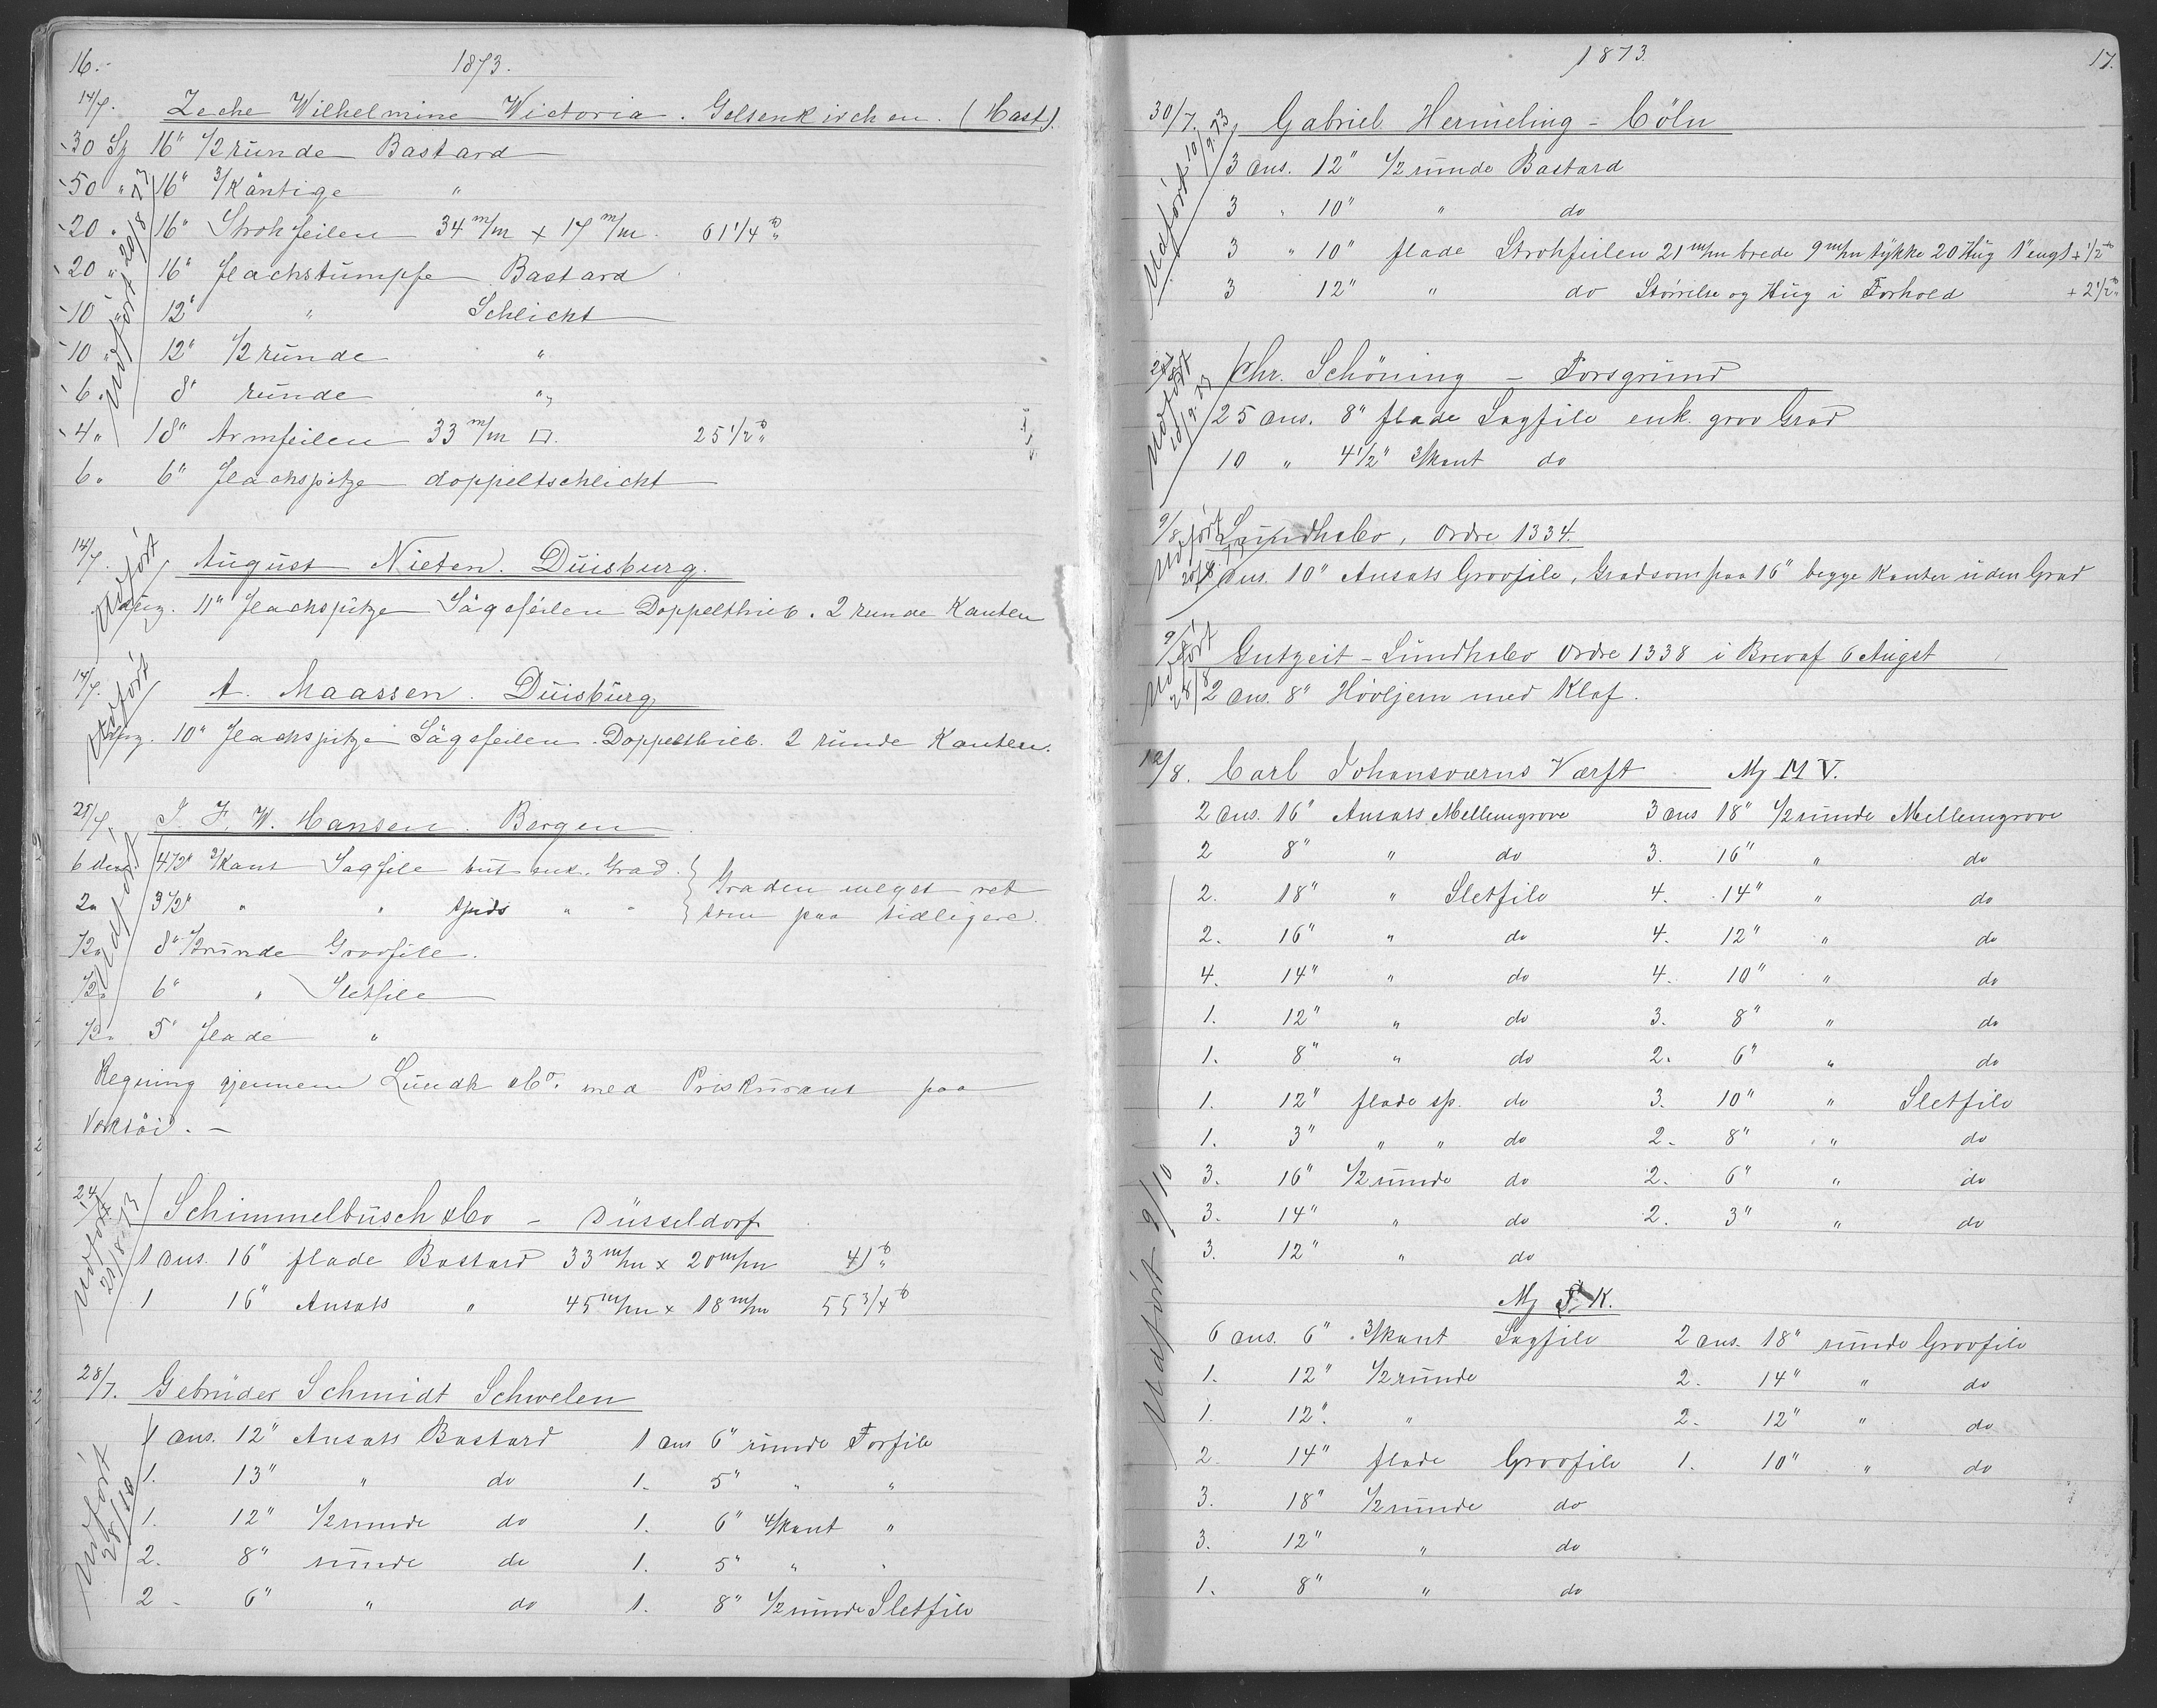 16.
1873.
14/7. Zeche Wilhelmine Wictoria. Gelsenkirchen. (Hast).
30 Sz 16" 1/2 runde Bastard
50 " 16" 3/Käntige "
20 " 16" Strohfeilen 34 m/m x 17 m/m 61 1/4 ℔
20 " 16" Flachstumpfe Bastard
10 " 12" " Schlicht
10 " 12" 1/2 runde "
6 " 8" runde "
4 " 18" Armfeilen 33 m/m □. 25 1/2 ℔
6 " 6" Flachspitze doppeltschlicht
Udfört 20/8 73
14/7. August Nieten. Duisburg.
11" Flachspitze Sägefeilen Doppelthieb. 2 runde Kanten
Udfört
14/7. A. Maassen. Duisburg
10" Flachspitze Sägefeilen. Doppelthieb. 2 runde Kanten.
Udfört
J. F. W. Hansen. Bergen
6 4 1/2" 3/kant Sagfile but enk. Grad. } Graden meget ret
2 " 3 1/2" " " spids " " } som paa tidligere.
1/2 " 8" 1/2 runde Groofile.
1/2 " 6" " Sletfile
1/2 " 5" flade "
Udfört
Regning gjennem Lundh &Co. med Priskurant paa
Verktöi. —
24/7 Schimmelbusch &Co – Düsseldorf
1 dus. 16" flade Bastard 33 m/m x 20 m/m 41 ℔
1 16" Ansats " 45 m/m x 18 m/m 55 3/4 ℔
Udfört 21/8-73
28/7. Gebrüder Schmidt Schwelen
1 dus. 12" Ansats Bastard 1 dus 6" runde Forfile
1. 13" " do 1. 5" " "
1. 12" 1/2 runde do 1. 6" 4/kant "
2. 8" runde do 1. 5" " "
2 6" " do 1. 8" 1/2 runde Sletfile
Udfört 28/10
1873.
17.
30/7. Gabriel Hermeling – Cöln
3 dus. 12" 1/2 runde Bastard
3 " 10" " do
3 " 10" flade Strohfeilen 21 m/m brede 9 m/m tykke 20 Hug 1" engl + 1/2 ℔
3 12" " do Störrelse og Hug i Forhold + 2 1/2 ℔
Udfört 10/9.73
Chr. Schöning – Porsgrund
25 dus. 8" flade Sagfile enk. grov Grad
10 " 4 1/2" 3/kant do
Udfört 10/9.73
9/8 Lundh &Co, Ordre 1334.
dus. 10" Ansats Groofile, Grad som paa 16" begge Kanter uden Grad
Udfört
9/8 Gutzeit – Lundh &Co Ordre 1338 i Brev af 6 Augst
2 dus. 8" Hövljern med Klaf.
Udfört 28/8
12/8. Carl Johansværns Værft Mz M V.
2 dus. 16" Ansats Mellemgrove 3 dus 18" 1/2 runde Mellemgrove
2 8" " do 3. 16" " do
2. 18" " Sletfile 4. 14" " do
2. 16" " do 4. 12" " do
4. 14" " do 4. 10" " do
1. 12" " do 3. 8" " do
1. 8" " do 2. 6" " do
1. 12" flade sp. do 3. 10" " Sletfile
1. 3" " " do 2. 8" " do
3. 16" 1/2 runde do 2. 6" " do
3. 14" " do 2. 3" " do
3. 12" " do
Mz K.
6 dus. 6" 3/kant Sagfile 2 dus. 18" runde Groofile
1. 12" 1/2 runde 2. 14" " do
1. 12" " 2. 12" " do
2. 14" flade Groofile 1. 10" " do
3. 18" 1/2 runde do
3. 12" " do
1. 8" " do
Udfört 9/10